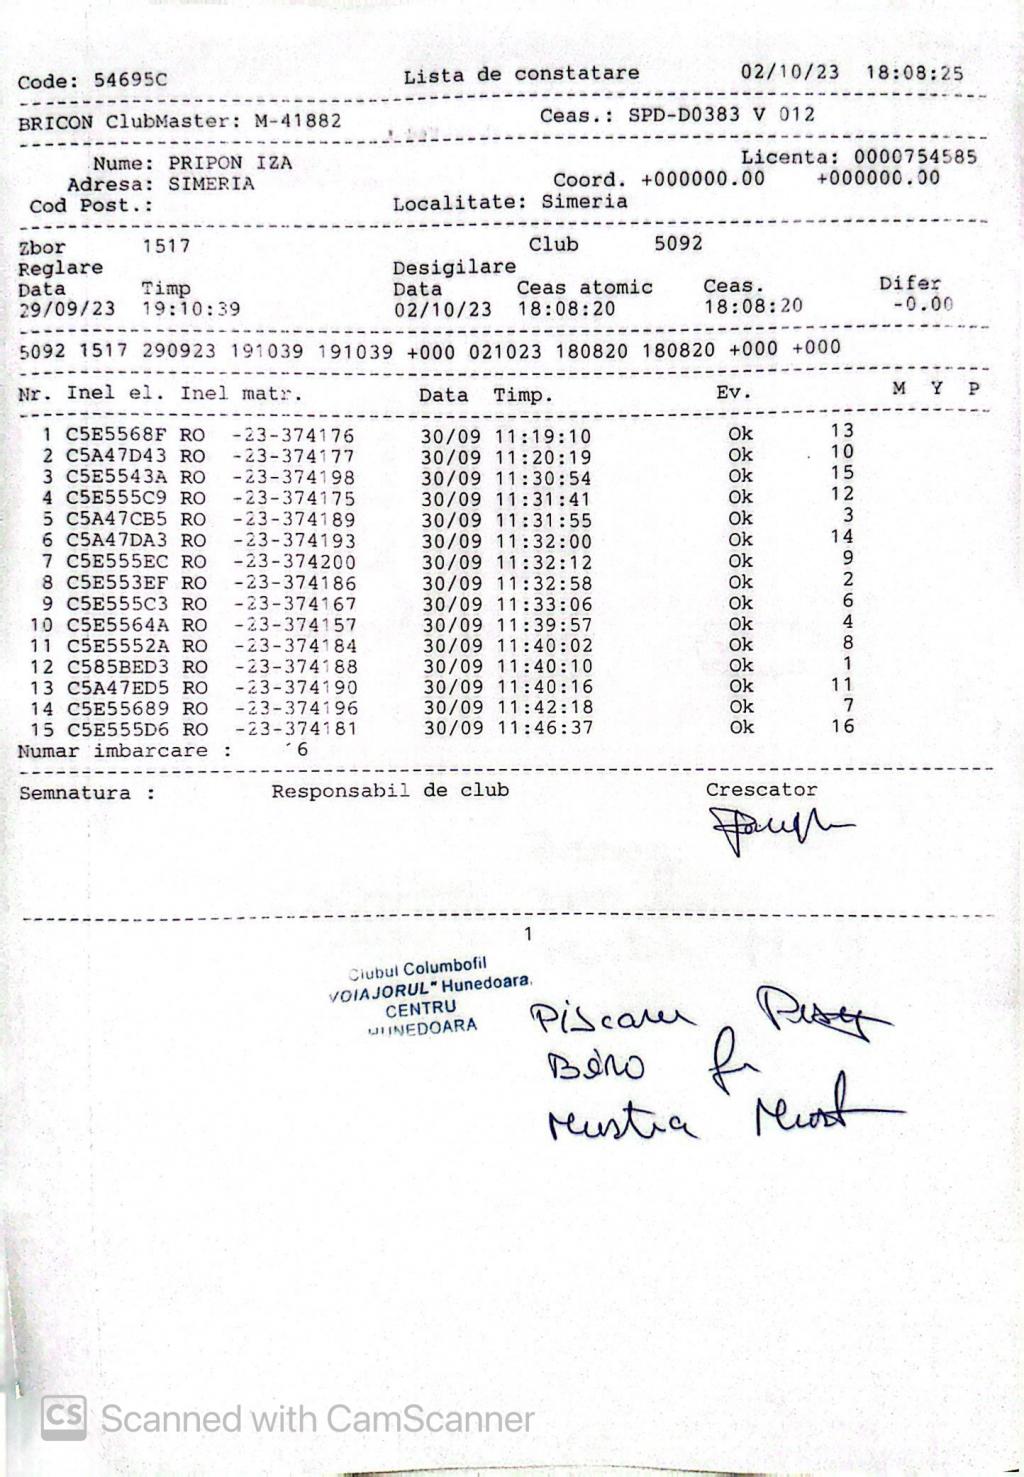 Code: 54695C Lista de constatare 02/10/23 18:08:25
BRICON ClubMaster: M-41882 Ceas.: SPD-D0383 V 012
Nume: PRIPON IZA Licenta: 0000754585
Adresa: SIMERIA Coord. +000000.00 +000000.00
Cod Post.: Localitate: Simeria
Zbor 1517 Club 5092
Reglare Desigilare
Data Timp Data Ceas atomic Ceas. Difer
29/09/23 19:10:39 02/10/23 18:08:20 18:08:20 -0.00
5092 1517 290923 191039 191039 +000 021023 180820 180820 +000 +000
Nr. Inel el. Inel matr. Data Timp. Ev. M Y P
1 C5E5568F RO -23-374176 30/09 11:19:10 Ok 13
2 C5A47D43 RO -23-374177 30/09 11:20:19 Ok 10
3 C5E5543A RO -23-374198 30/09 11:30:54 Ok 15
4 C5E555C9 RO -23-374175 30/09 11:31:41 Ok 12
5 C5A47CB5 RO -23-374189 30/09 11:31:55 Ok 3
6 C5A47DA3 RO -23-374193 30/09 11:32:00 Ok 14
7 C5E555EC RO -23-374200 30/09 11:32:12 Ok 9
8 C5E553EF RO -23-374186 30/09 11:32:58 Ok 2
9 C5E555C3 RO -23-374167 30/09 11:33:06 Ok 6
10 C5E5564A RO -23-374157 30/09 11:39:57 Ok 4
11 C5E5552A RO -23-374184 30/09 11:40:02 Ok 8
12 C585BED3 RO -23-374188 30/09 11:40:10 Ok 1
13 C5A47ED5 RO -23-374190 30/09 11:40:16 Ok 11
14 C5E55689 RO -23-374196 30/09 11:42:18 Ok 7
15 C5E555D6 RO -23-374181 30/09 11:46:37 Ok 16
Numar imbarcare : 6
Semnatura : Responsabil de club Crescator
1
Clubul Columbofil
VOIAJORUL" Hunedoara.
CENTRU
HUNEDOARA
Piscanu
Béro
Mustia
CS Scanned with CamScanner